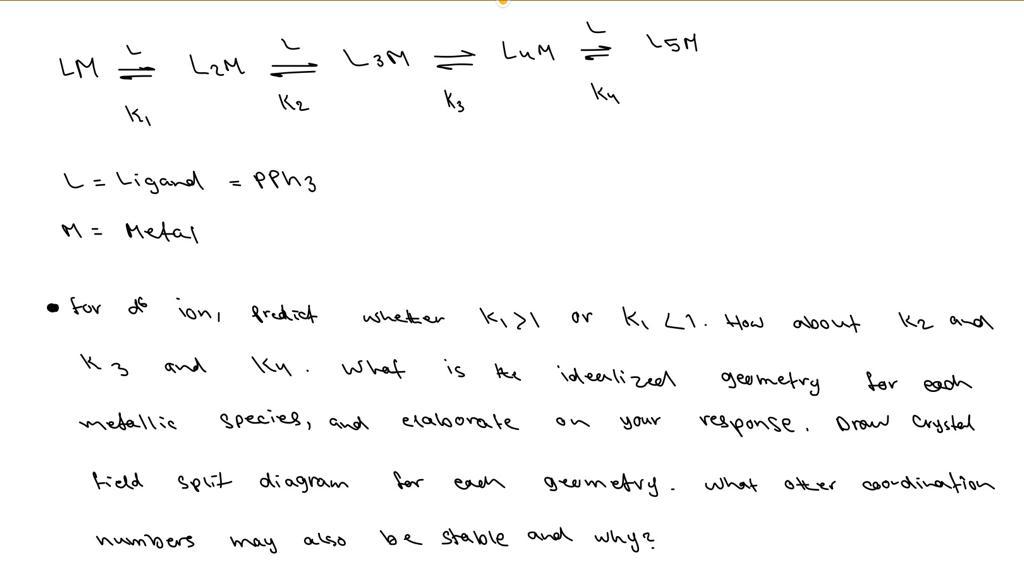 L L L
LM ⇌ L2M ⇌ L3M ⇌ L4M ⇌ L5M
K1 K2 K3 K4
L = Ligand = PPh3
M = Metal
• for d6 ion, predict whether K1>1 or K1<1. How about K2 and
K3 and K4. What is the idealized geometry for each
metallic species, and elaborate on your response. Draw Crystal
field split diagram for each geometry. What other coordination
numbers may also be stable and why?